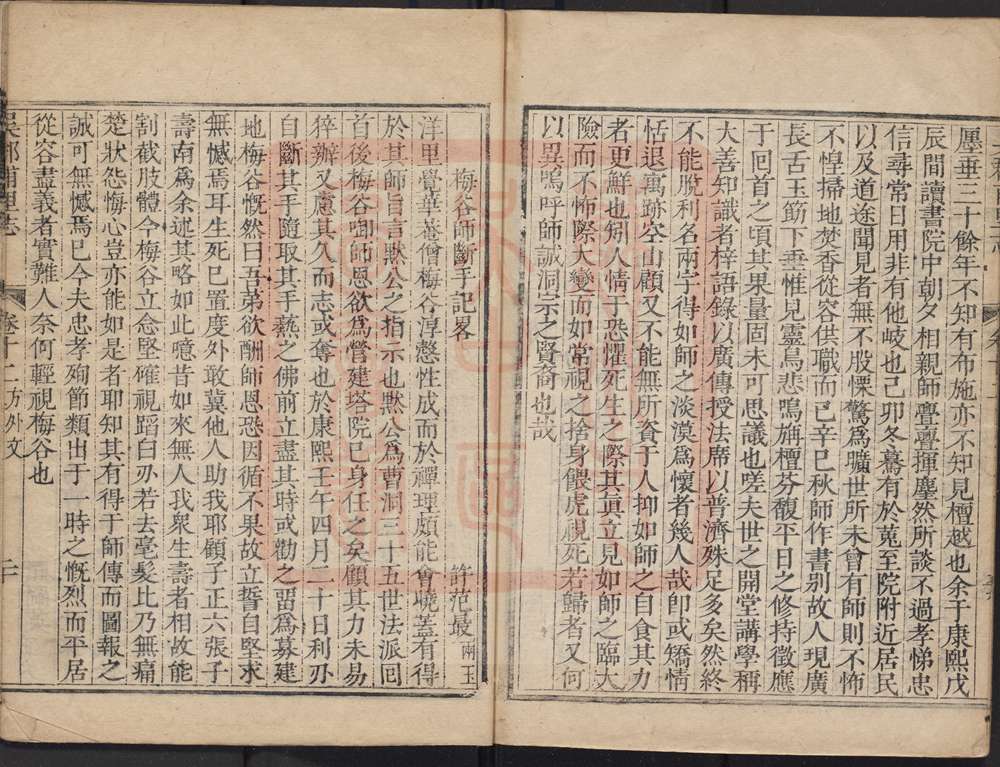 壓垂三十餘年不知有布施亦不知見檀越也余于康熙戊
辰間讀書院中朝夕相親師亹亹揮麈然所談不過孝悌忠
信尋常日用非有他岐也己卯冬驀有於菟至院附近居民
以及道途聞見者無不股慄驚為曠世所未曾有師則不怖
不惶掃地焚香從容供職而已辛巳秋師作書別故人現廣
長舌玉筯下垂惟見靈鳥悲鳴旃檀芬馥平日之修持徵應
于回首之頃其果量固未可思議也嗟夫世之開堂講學稱
大善知識者梓語錄以廣傳授法席以普濟殊足多矣然終
不能脫利名兩字得如師之淡漠為懷者幾人哉即或矯情
恬退寓跡空山顧又不能無所資于人抑如師之自食其力
者更鮮也矧人情于恐懼死生之際其真立見如師之臨大
險而不怖際大變而如常視之捨身餵虎視死若歸者又何
以異嗚呼師誠洞宗之賢裔也哉
梅谷師斷手記畧
許范最兩玉
洋里覺華菴僧梅谷淳慤性成而於禪理頗能會曉蓋有得
於其師旨言默公之指示也默公為曹洞三十五世法派回
首後梅谷啣師恩欲為營建塔院已身任之矣顧其力未易
猝辦又慮其久而志或奪也於康熙壬午四月二十日利刃
自斷其手隨取其手爇之佛前立盡其時或勸之畱為募建
地梅谷慨然曰吾弟欲酬師恩恐因循不果故立誓自堅求
無憾焉耳生死已置度外敢冀他人助我耶顧子正六張子
壽南為余述其略如此噫昔如來無人我衆生壽者相故能
割截肢體今梅谷立念堅確視蹈白刃若去毫髮比乃無痛
楚狀怨悔心豈亦能如是者耶知其有得于師傳而圖報之
誠可無憾焉已今夫忠孝殉節類出于一時之慨烈而平居
從容盡義者實難人奈何輕視梅谷也
吳郡甫里志
卷十二方外文
二